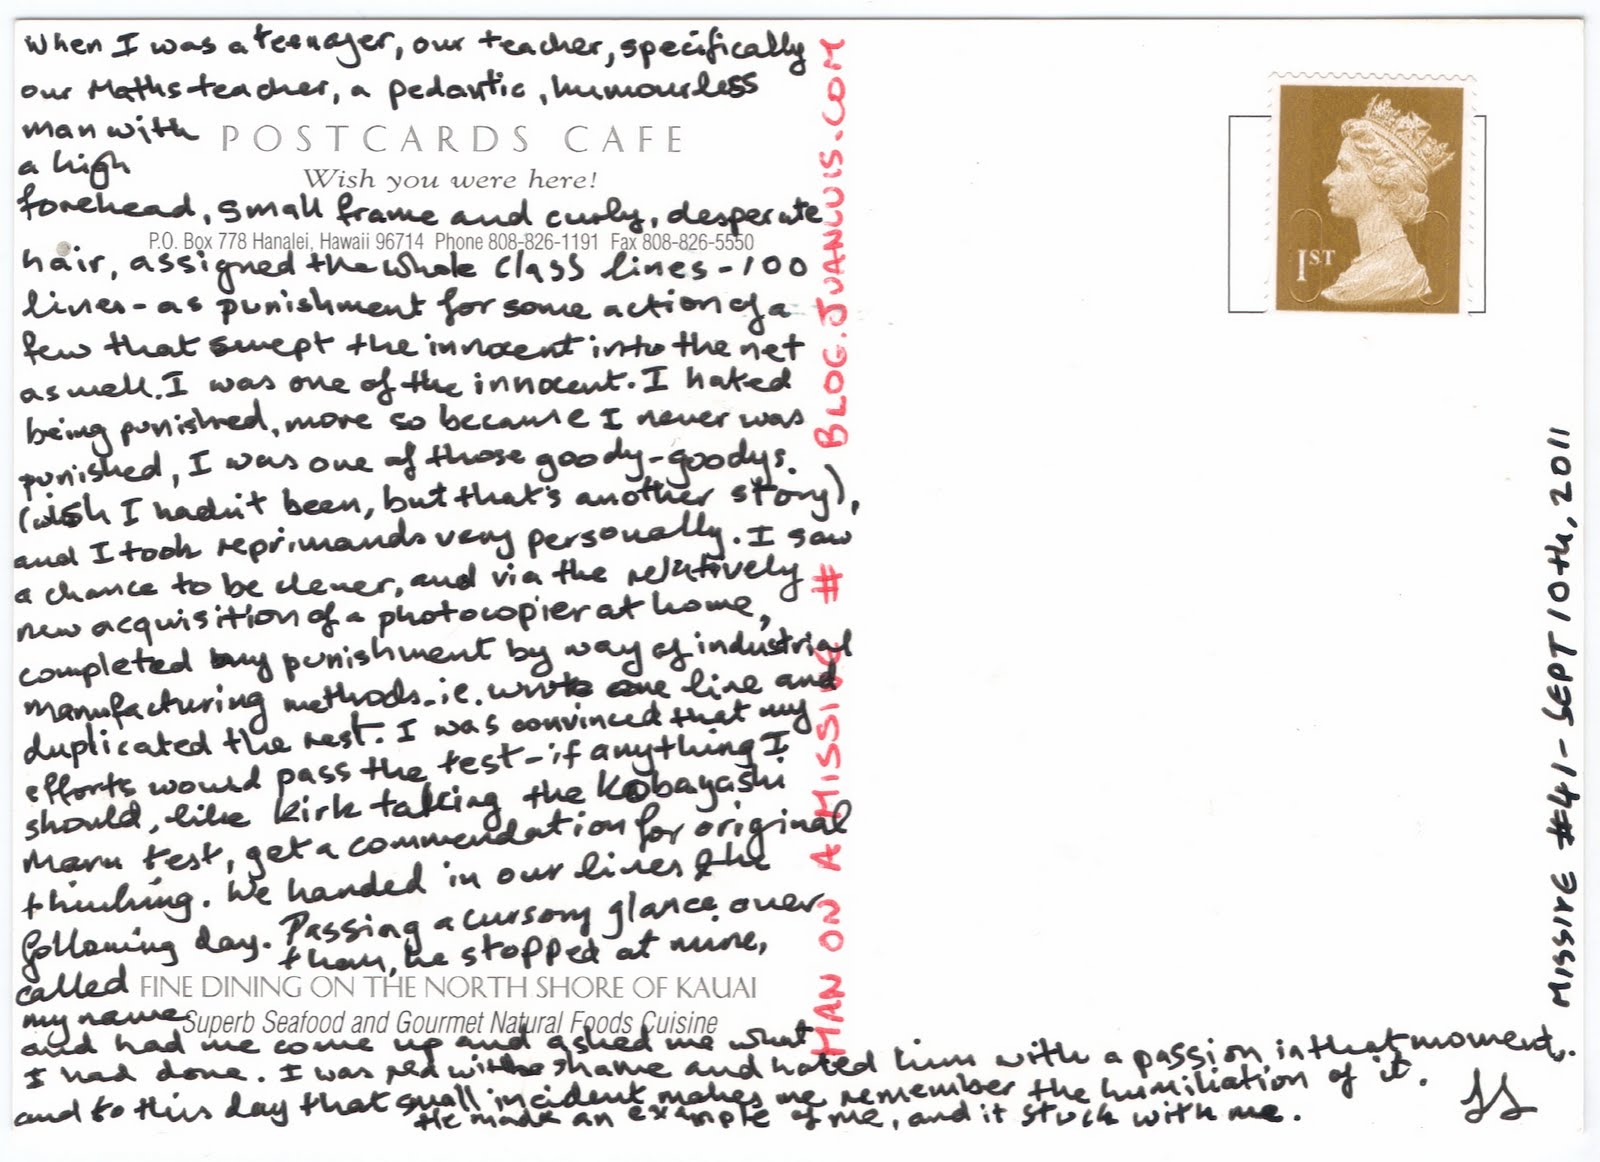 When I was a teenager, our teacher, specifically
our Maths teacher, a pedantic, humourless
man with
POSTCARDS CAFE
a high
Wish you were here!
forehead, small frame and curly, desperate
P.O. Box 778 Hanalei, Hawaii 96714 Phone 808-826-1191 Fax 808-826-5550
hair, assigned the whole class lines - 100
lines - as punishment for some action of a
few that swept the innocent into the net
as well. I was one of the innocent. I hated
being punished, more so because I never was
punished, I was one of those goody-goodys.
(wish I hadn't been, but that's another story),
and I took reprimands very personally. I saw
a chance to be clever, and via the relatively
new acquisition of a photocopier at home,
completed my punishment by way of industrial
manufacturing methods - i.e. wrote one line and
duplicated the rest. I was convinced that my
efforts would pass the test - if anything I
should, like Kirk taking the Kobayashi
Maru test, get a commendation for original
thinking. We handed in our lines the
following day. Passing a cursory glance over
them, he stopped at mine,
called
FINE DINING ON THE NORTH SHORE OF KAUAI
my name
Superb Seafood and Gourmet Natural Foods Cuisine
and had me come up and asked me what
I had done. I was red with shame and hated him with a passion in that moment,
and to this day that small incident makes me remember the humiliation of it.
He made an example of me, and it stuck with me.
MAN ON A MISSIVE # BLOG.JUANLUIS.COM
1ST
MISSIVE #41 - SEPT 10th, 2011